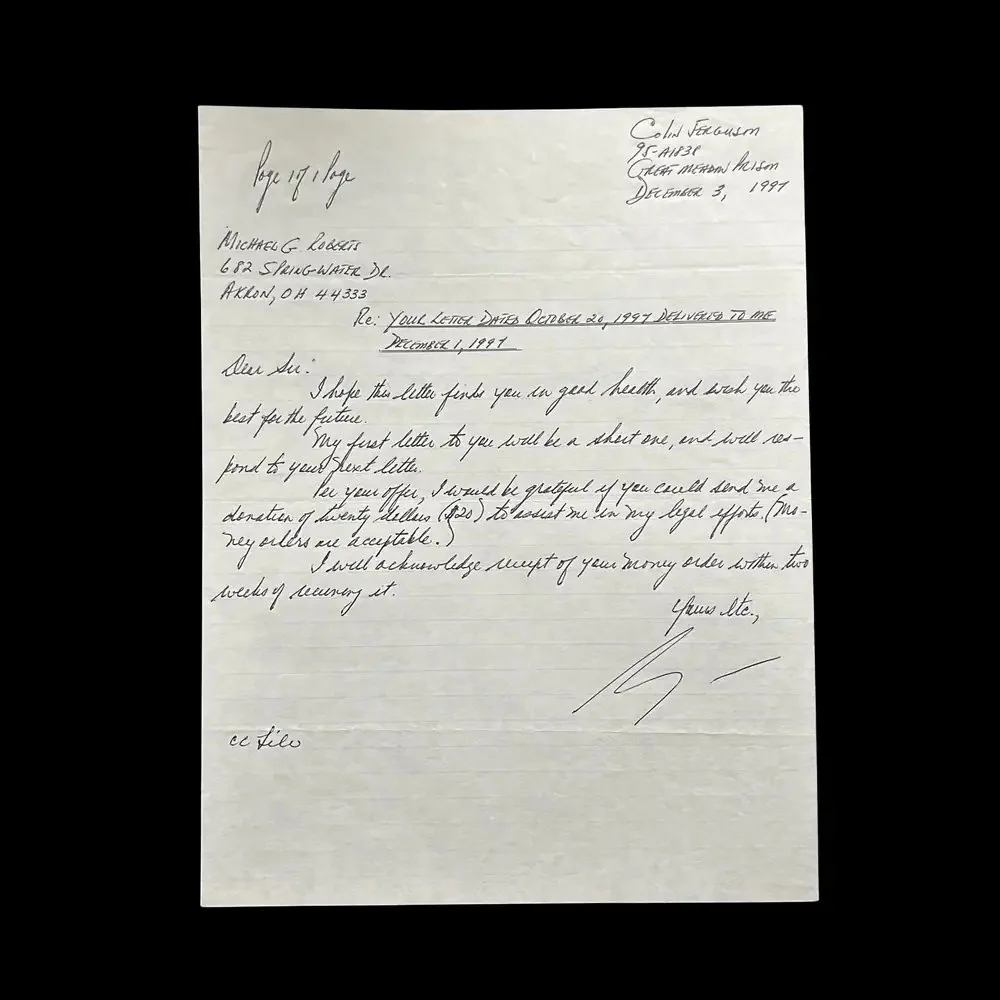 Colin Ferguson
95-A1838
Great Meadow Prison
December 3, 1997
Page 1 of 1 Page
Michael G. Roberts
682 Springwater Dr.
Akron, OH 44333
Re: Your Letter Dated October 20, 1997 Delivered to me
December 1, 1997
Dear Sir:
I hope this letter finds you in good health, and wish you the
best for the future.
My first letter to you will be a short one, and will res-
pond to your next letter.
Per your offer, I would be grateful if you could send me a
donation of twenty dollars ($20) to assist me in my legal efforts. (Mo-
ney orders are acceptable.)
I will acknowledge receipt of your money order within two
weeks of receiving it.
Yours Etc.,
cc File